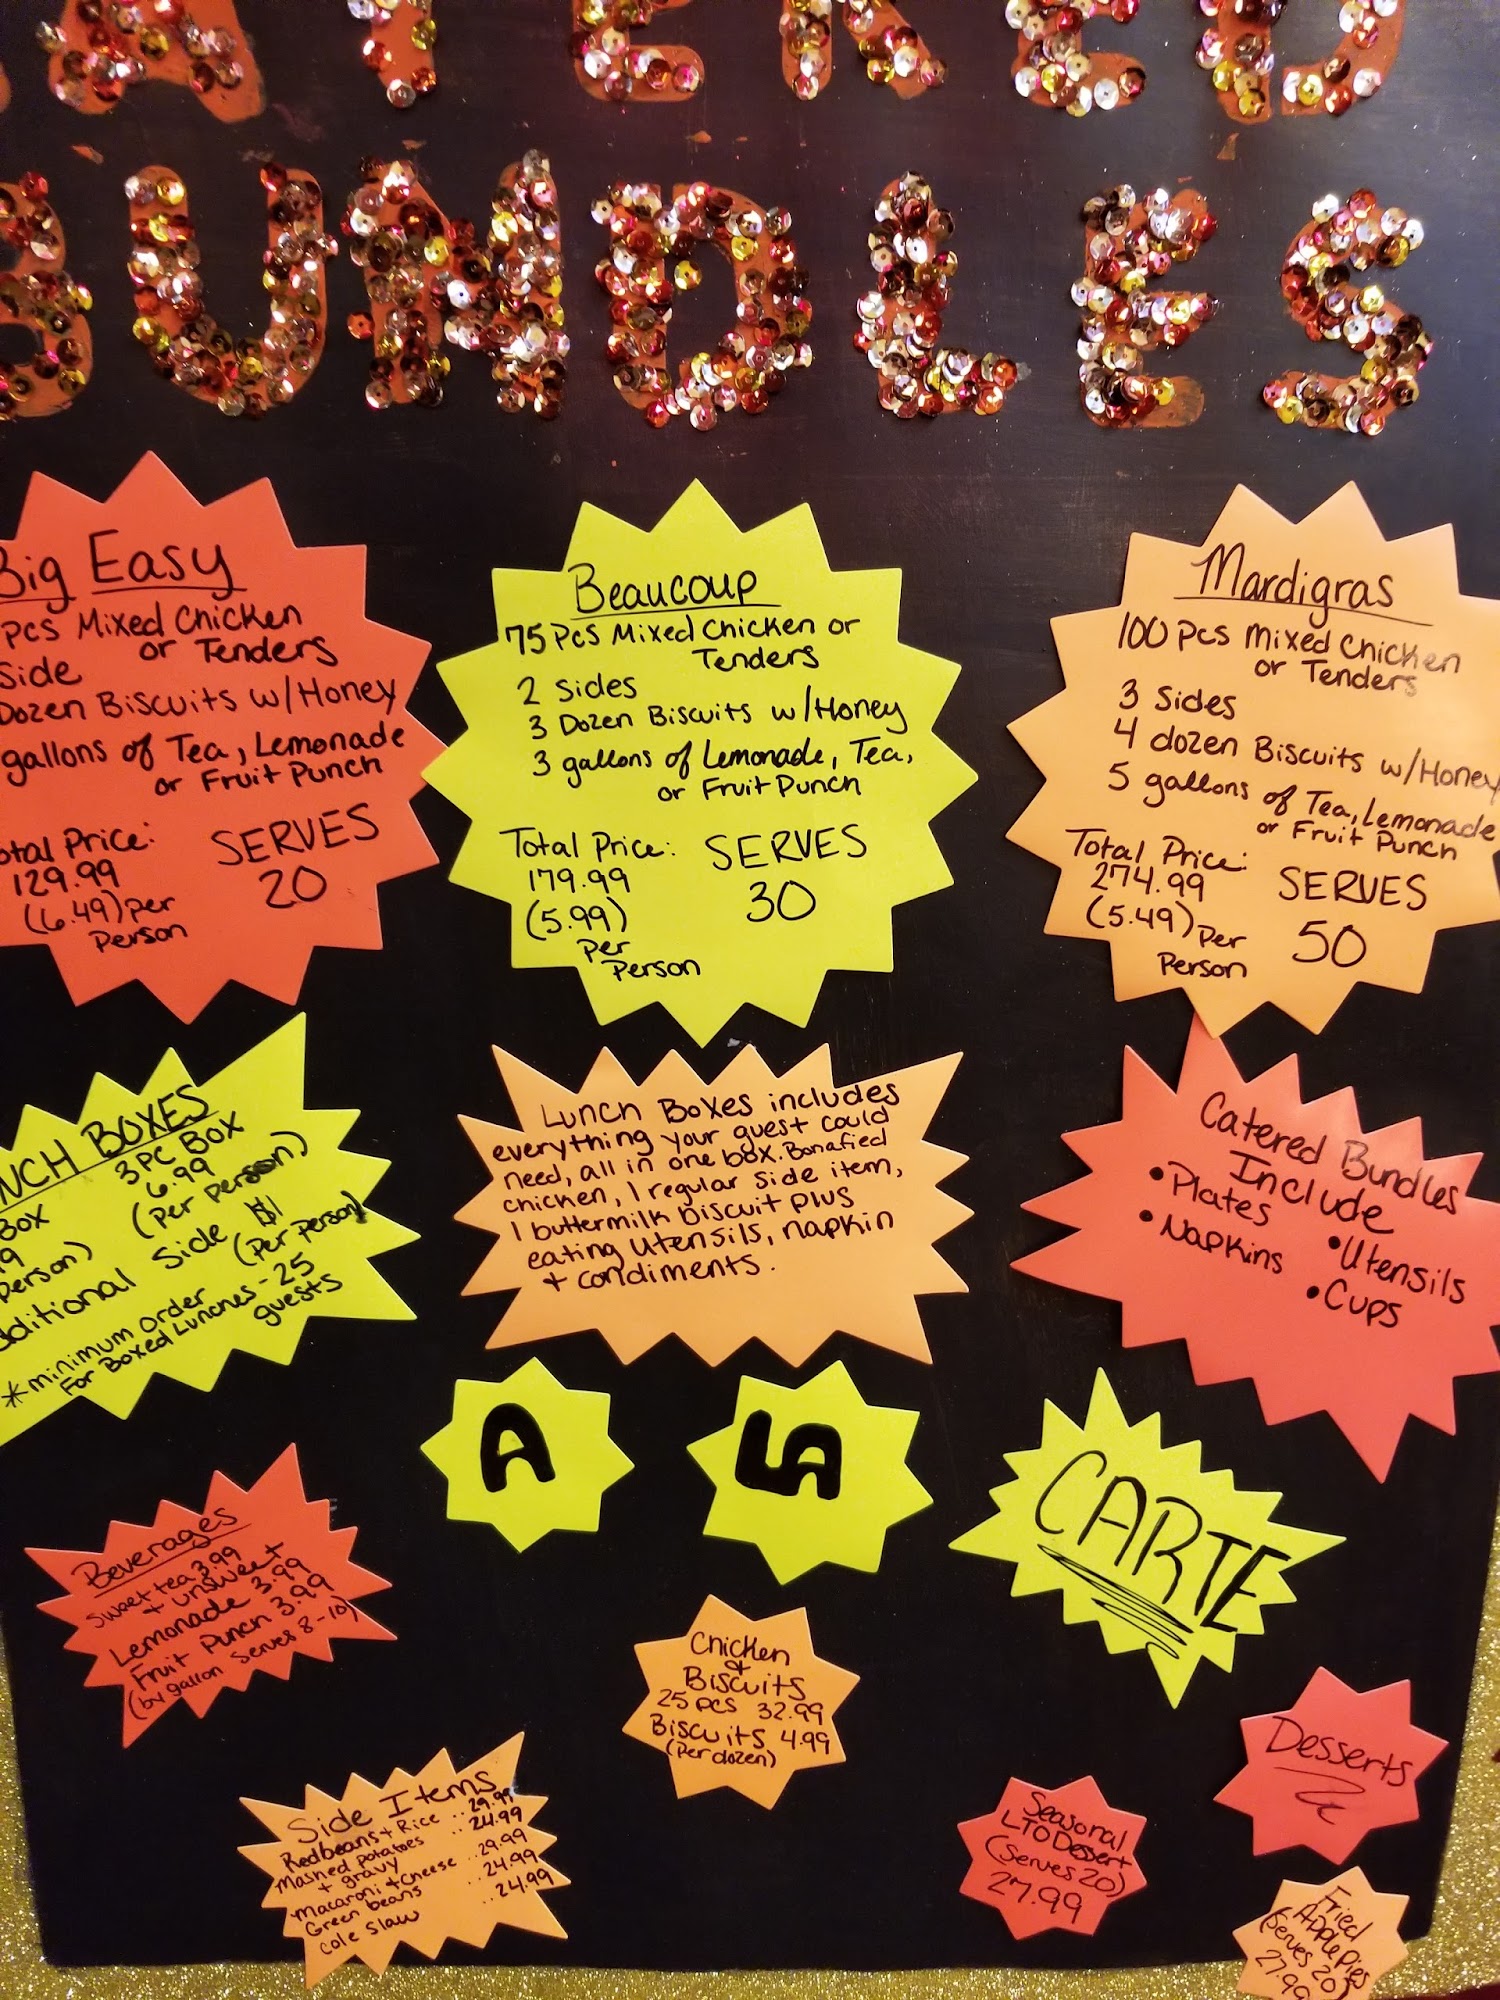 ATERED
BUNDLES
Big Easy
PCS Mixed Chicken
or Tenders
Side
Dozen Biscuits w/Honey
gallons of Tea, Lemonade
or Fruit Punch
otal Price:
129.99
(6.49) per
Person
SERVES
20
Beaucoup
75 Pcs Mixed Chicken or
Tenders
2 Sides
3 Dozen Biscuits w/Honey
3 gallons of Lemonade, Tea,
or Fruit Punch
Total Price:
179.99
(5.99)
Per
Person
SERVES
30
Mardigras
100 Pcs Mixed Chicken
or Tenders
3 Sides
4 dozen Biscuits w/Honey
5 gallons of Tea, Lemonade
or Fruit Punch
Total Price:
274.99
(5.49) Per
Person
SERVES
50
NCH BOXES
3 PC Box
6.99
(per person)
Box
9
person)
dditional Side $1
(Per Person)
*minimum order
For Boxed Lunches - 25
guests
Lunch Boxes includes
everything your guest could
need, all in one box. Bonafied
chicken, 1 regular side item,
1 buttermilk biscuit plus
eating utensils, napkin
+ condiments.
Catered Bundles
Include
• Plates
• Napkins
• Utensils
• Cups
A
LA
CARTE
Beverages
Sweet tea 3.99
+ unsweet
Lemonade 3.99
Fruit Punch 3.99
(by gallon Serves 8-10)
Chicken
+
Biscuits
25 PCS 32.99
Biscuits 4.99
(Per dozen)
Side Items
Redbeans + Rice .. 29.99
Mashed potatoes .. 24.99
+ gravy
Macaroni + Cheese .. 29.99
Green beans .. 24.99
Cole Slaw .. 24.99
Desserts
Seasonal
LTO Dessert
(Serves 20)
27.99
Fried
Apple Pies
(Serves 20)
27.99